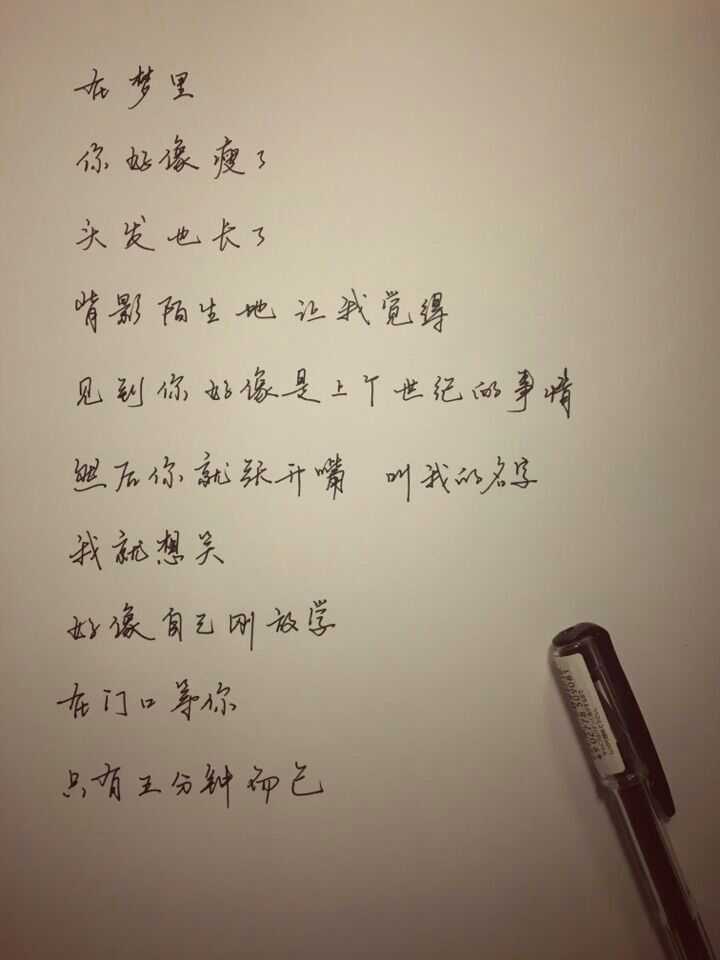 在梦里
你好像瘦了
头发也长了
背影陌生地让我觉得
见到你好像是上个世纪的事情
然后你就张开嘴 叫我的名字
我就想哭
好像自己刚放学
在门口等你
只有五分钟而已